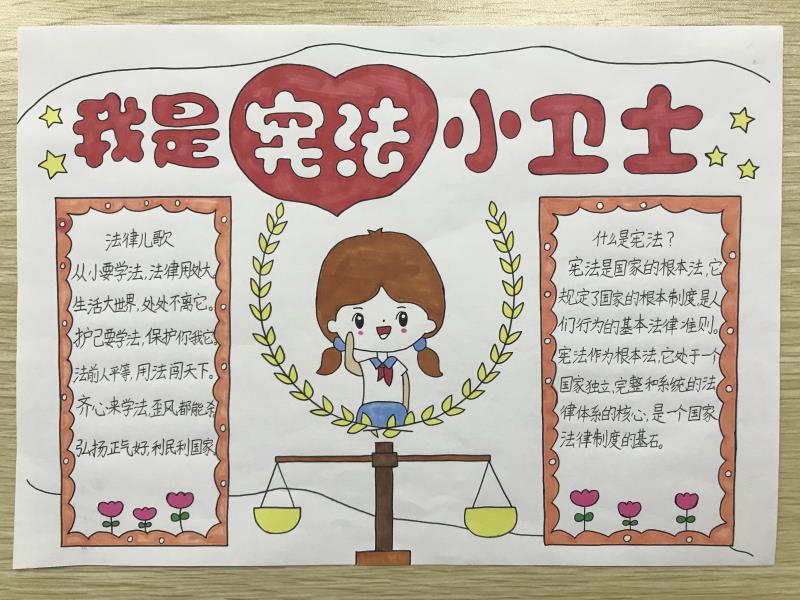 我是宪法小卫士
法律儿歌
从小要学法,法律用处大。
生活大世界,处处不离它。
护己要学法,保护你我它。
法前人平等,用法闯天下。
齐心来学法,歪风都能杀
弘扬正气好,利民利国家。
什么是宪法?
宪法是国家的根本法,它
规定了国家的根本制度,是人
们行为的基本法律准则。
宪法作为根本法,它处于一个
国家独立,完整和系统的法
律体系的核心,是一个国家
法律制度的基石。